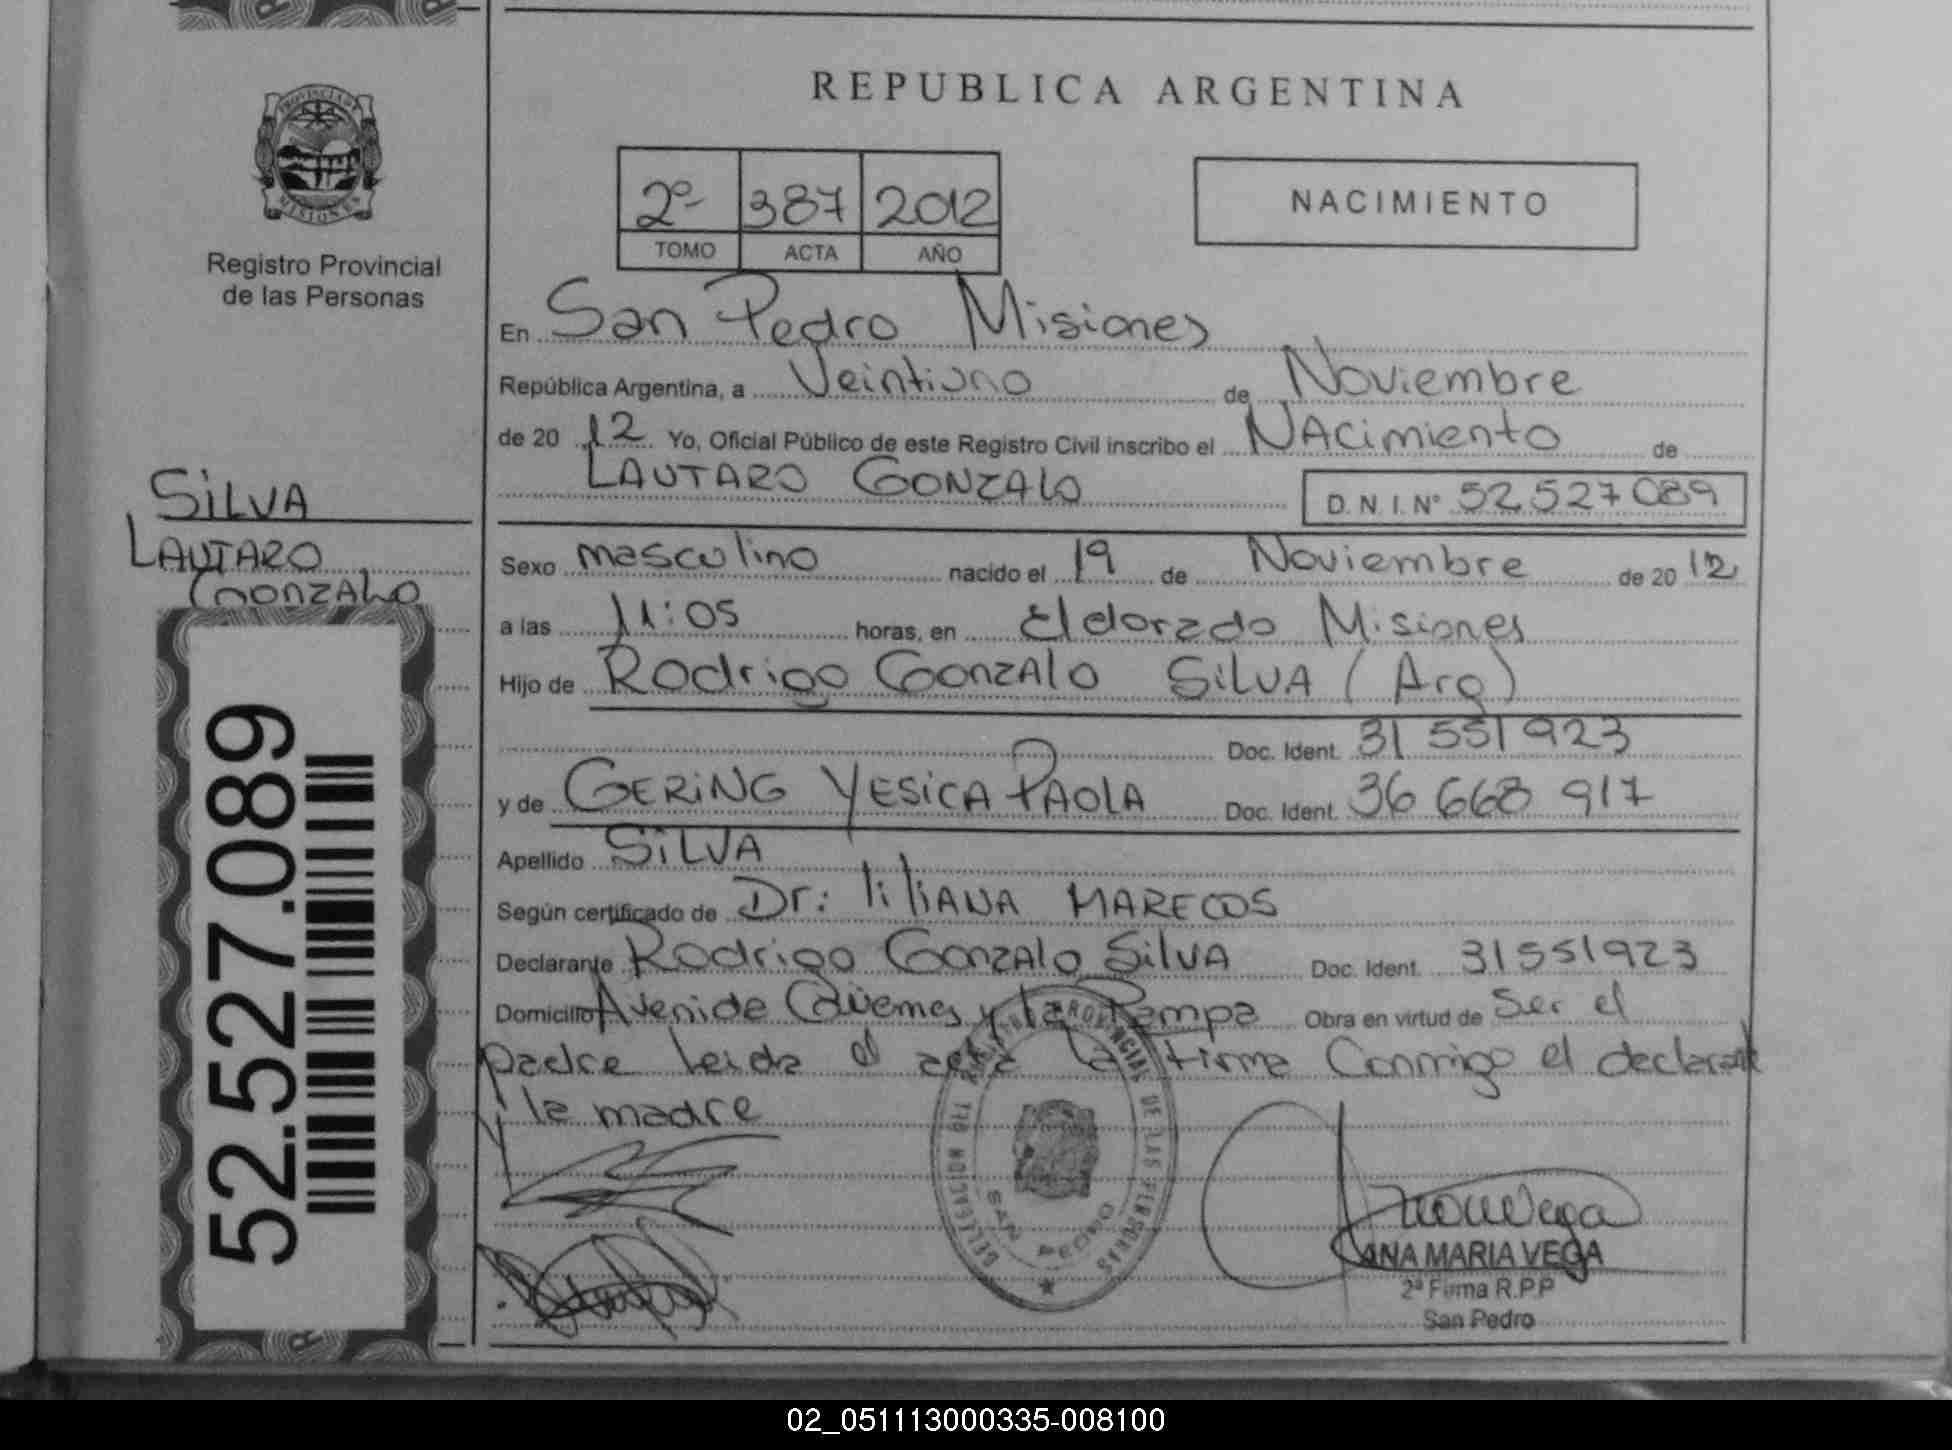 REPUBLICA ARGENTINA
PROVINCIA DE
MISIONES
Registro Provincial
de las Personas
2º 387 2012
TOMO ACTA AÑO
NACIMIENTO
En San Pedro Misiones
República Argentina, a Veintiuno de Noviembre
de 20 12 Yo, Oficial Público de este Registro Civil inscribo el NAcimiento de
LAUTARO GONZALO D. N. I. Nº 52.527 089
SILVA
LAUTARO
GONZALO
Sexo masculino nacido el 19 de Noviembre de 20 12
a las 11:05 horas, en Eldorado Misiones
Hijo de Rodrigo GONZALO SILVA (Arg)
Doc. Ident. 31 551 923
y de GERING YESICA PAOLA Doc. Ident. 36 668 917
Apellido SILVA
Según certificado de Dr: liliANA MARECOS
Declarante Rodrigo GONZALO SILVA Doc. Ident. 31551923
Domicilio Avenida Güemes y la Pampa Obra en virtud de Ser el
padre leida el acta la firma Conmigo el declarante
la madre
52.527.089
DELEGACION REGISTRO PROVINCIAL DE LAS PERSONAS
SAN PEDRO
ANA MARIA VEGA
2ª Firma R.P.P
San Pedro
02_051113000335-008100